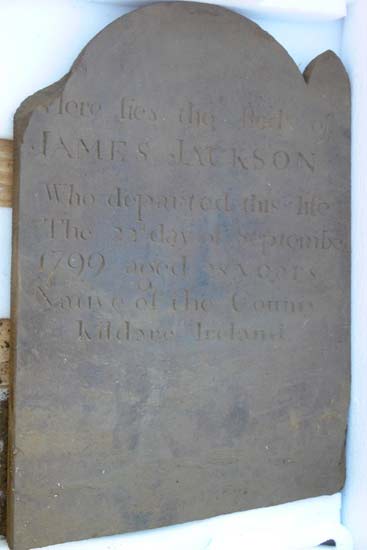 Here lies the Body of
JAMES JACKSON
Who departed this life
The 22d day of Septembe
1799 aged 28 years
Native of the County
Kildare Ireland